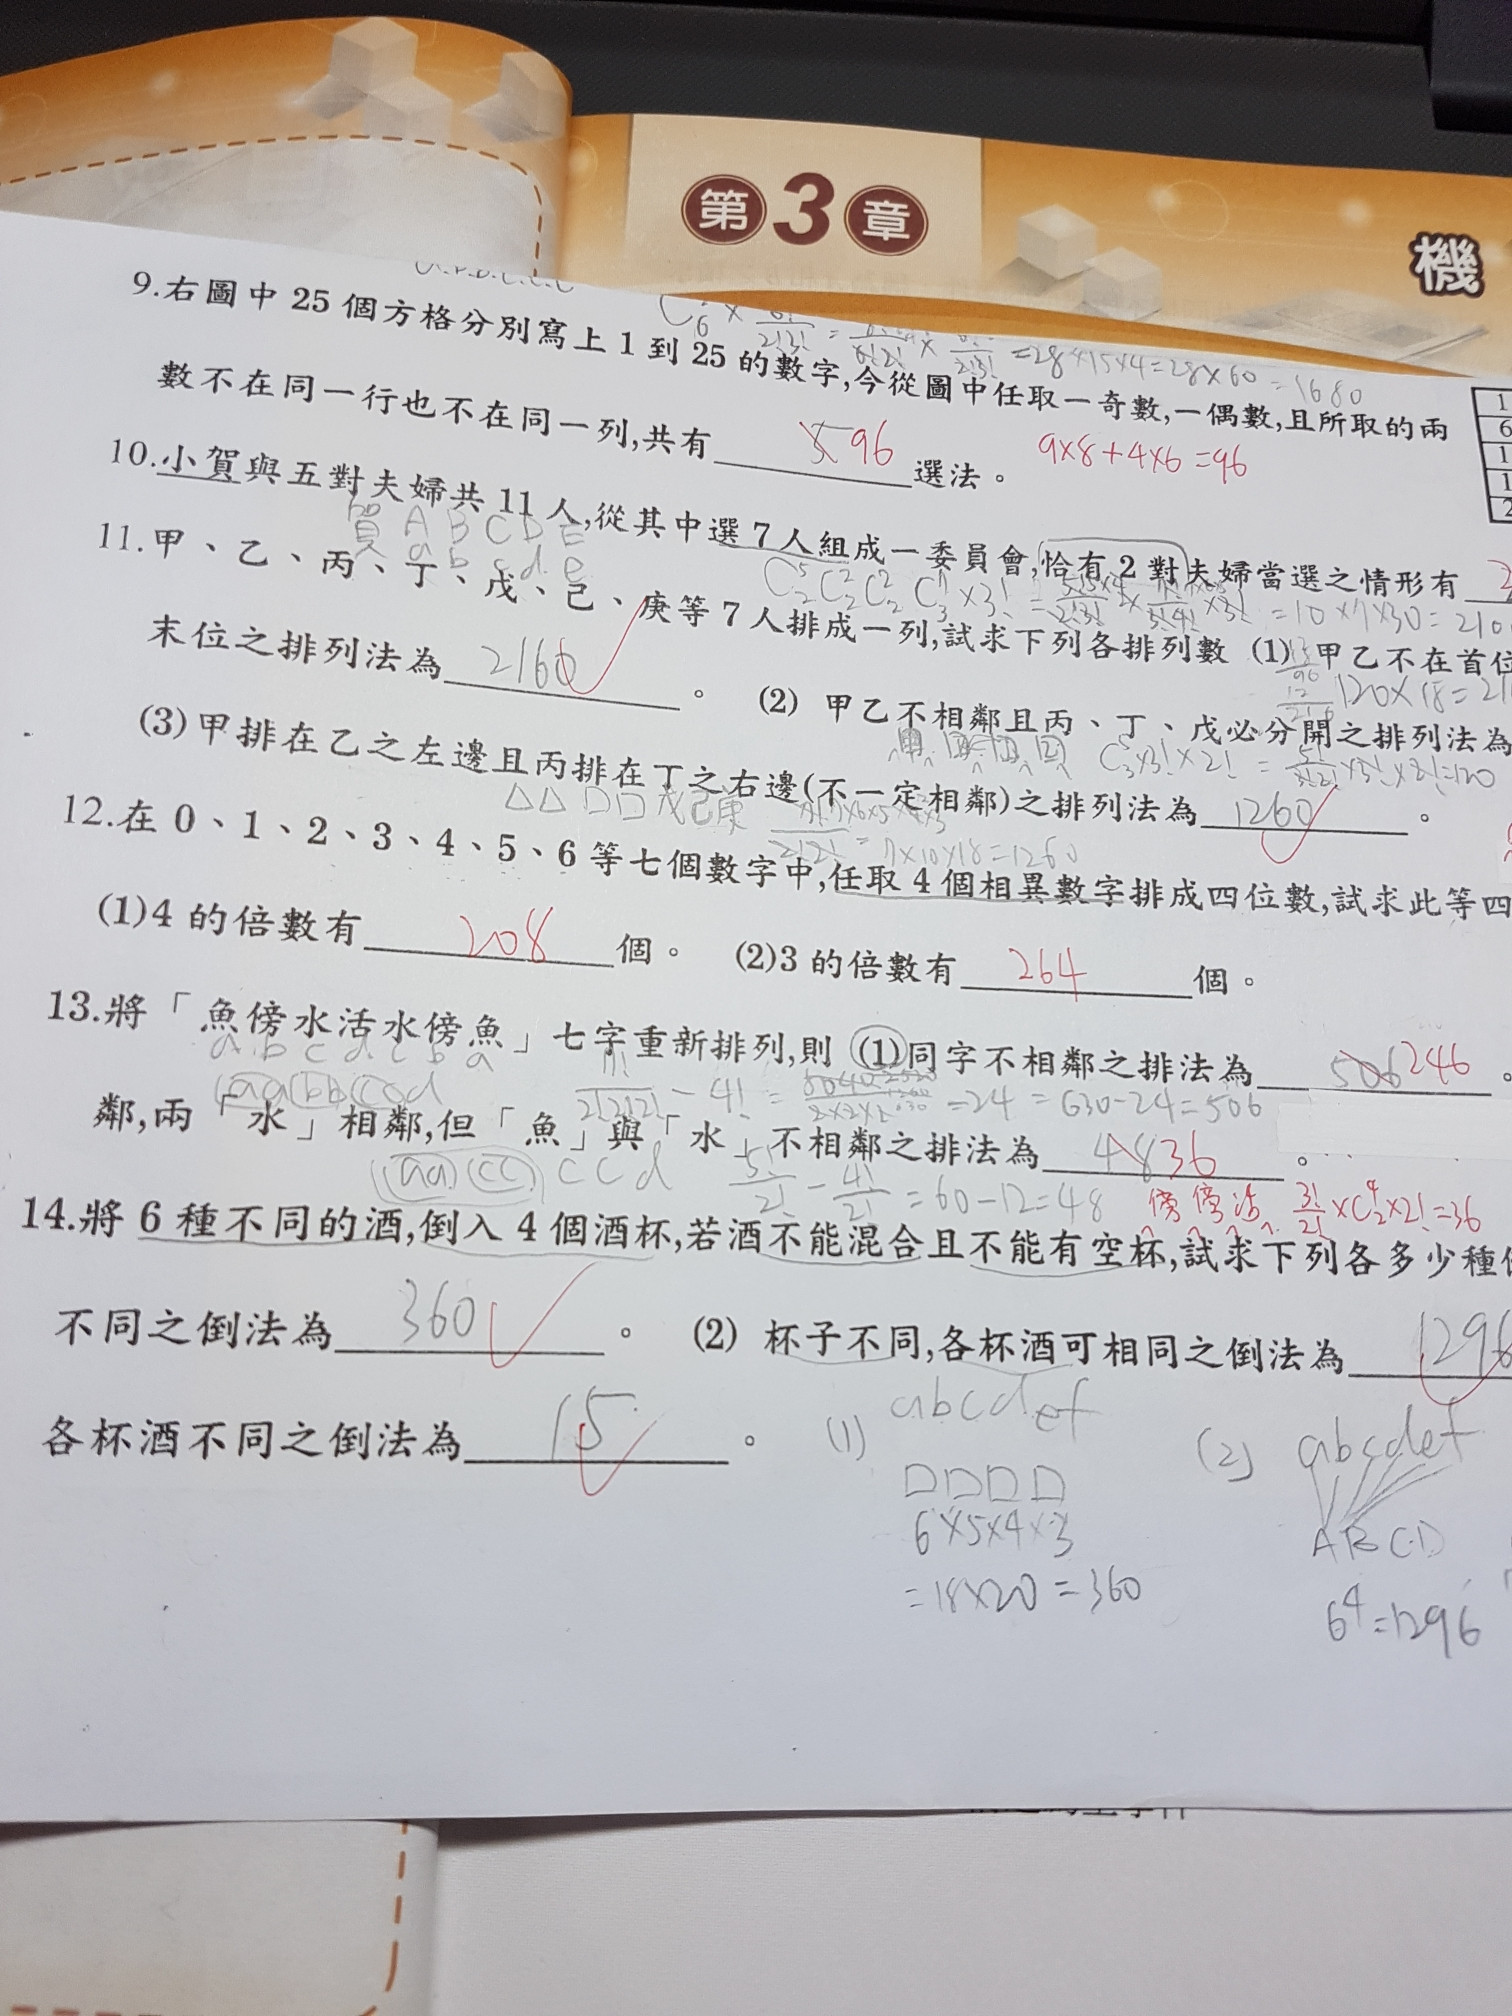 第3章
機
9.右圖中 25 個方格分別寫上 1 到 25 的數字,今從圖中任取一奇數,一偶數,且所取的兩
=28×15×4=28×60=1680
數不在同一行也不在同一列,共有 96 選法。
9×8+4×6=96
10.小賀與五對夫婦共 11 人,從其中選 7 人組成一委員會,恰有 2 對夫婦當選之情形有
賀 A B C D E
a b c d e
=10×7×30=210
11.甲、乙、丙、丁、戊、己、庚等 7 人排成一列,試求下列各排列數 (1) 甲乙不在首位
120×18=21
末位之排列法為 2160 。 (2) 甲乙不相鄰且丙、丁、戊必分開之排列法為
(3)甲排在乙之左邊且丙排在丁之右邊(不一定相鄰)之排列法為 1260 。
△△ □□ 戊己庚
7×10×18=1260
12.在 0、1、2、3、4、5、6 等七個數字中,任取 4 個相異數字排成四位數,試求此等四
(1)4 的倍數有 208 個。 (2)3 的倍數有 264 個。
13.將「魚傍水活水傍魚」七字重新排列,則 (1)同字不相鄰之排法為 506 246 。
a b c d c b a
aabbccd
=630-24=506
鄰,兩「水」相鄰,但「魚」與「水」不相鄰之排法為 48 36 。
aa cc c c d 5!/2! - 4!/2! =60-12=48
傍 傍 活 3!/2!×C⁴₂×2!=36
14.將 6 種不同的酒,倒入 4 個酒杯,若酒不能混合且不能有空杯,試求下列各多少種
不同之倒法為 360 。 (2) 杯子不同,各杯酒可相同之倒法為 1296
各杯酒不同之倒法為 15 。
(1) abcdef
□□□□
6×5×4×3
=18×20=360
(2) abcdef
ABCD
6⁴=1296